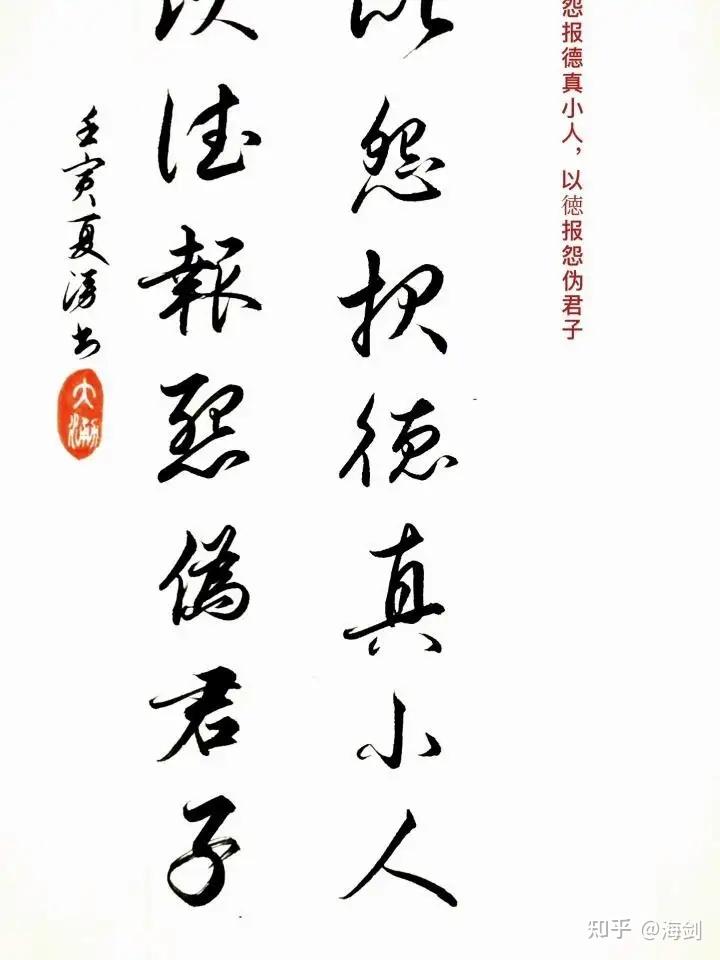 怨报德真小人，以徳报怨伪君子
以怨报徳真小人
以德報怨偽君子
壬寅夏湧书
知乎 @海剑